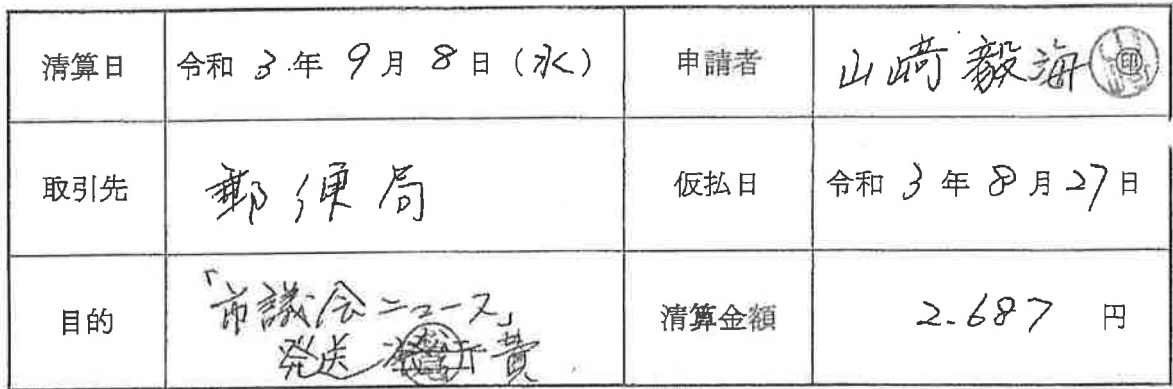 清算日 令和 3 年 9 月 8 日 (水) 申請者 山崎 毅海 印
取引先 郵便局 仮払日 令和 3 年 8 月 27 日
目的 「市議会ニュース」 清算金額 2.687 円
発送 費